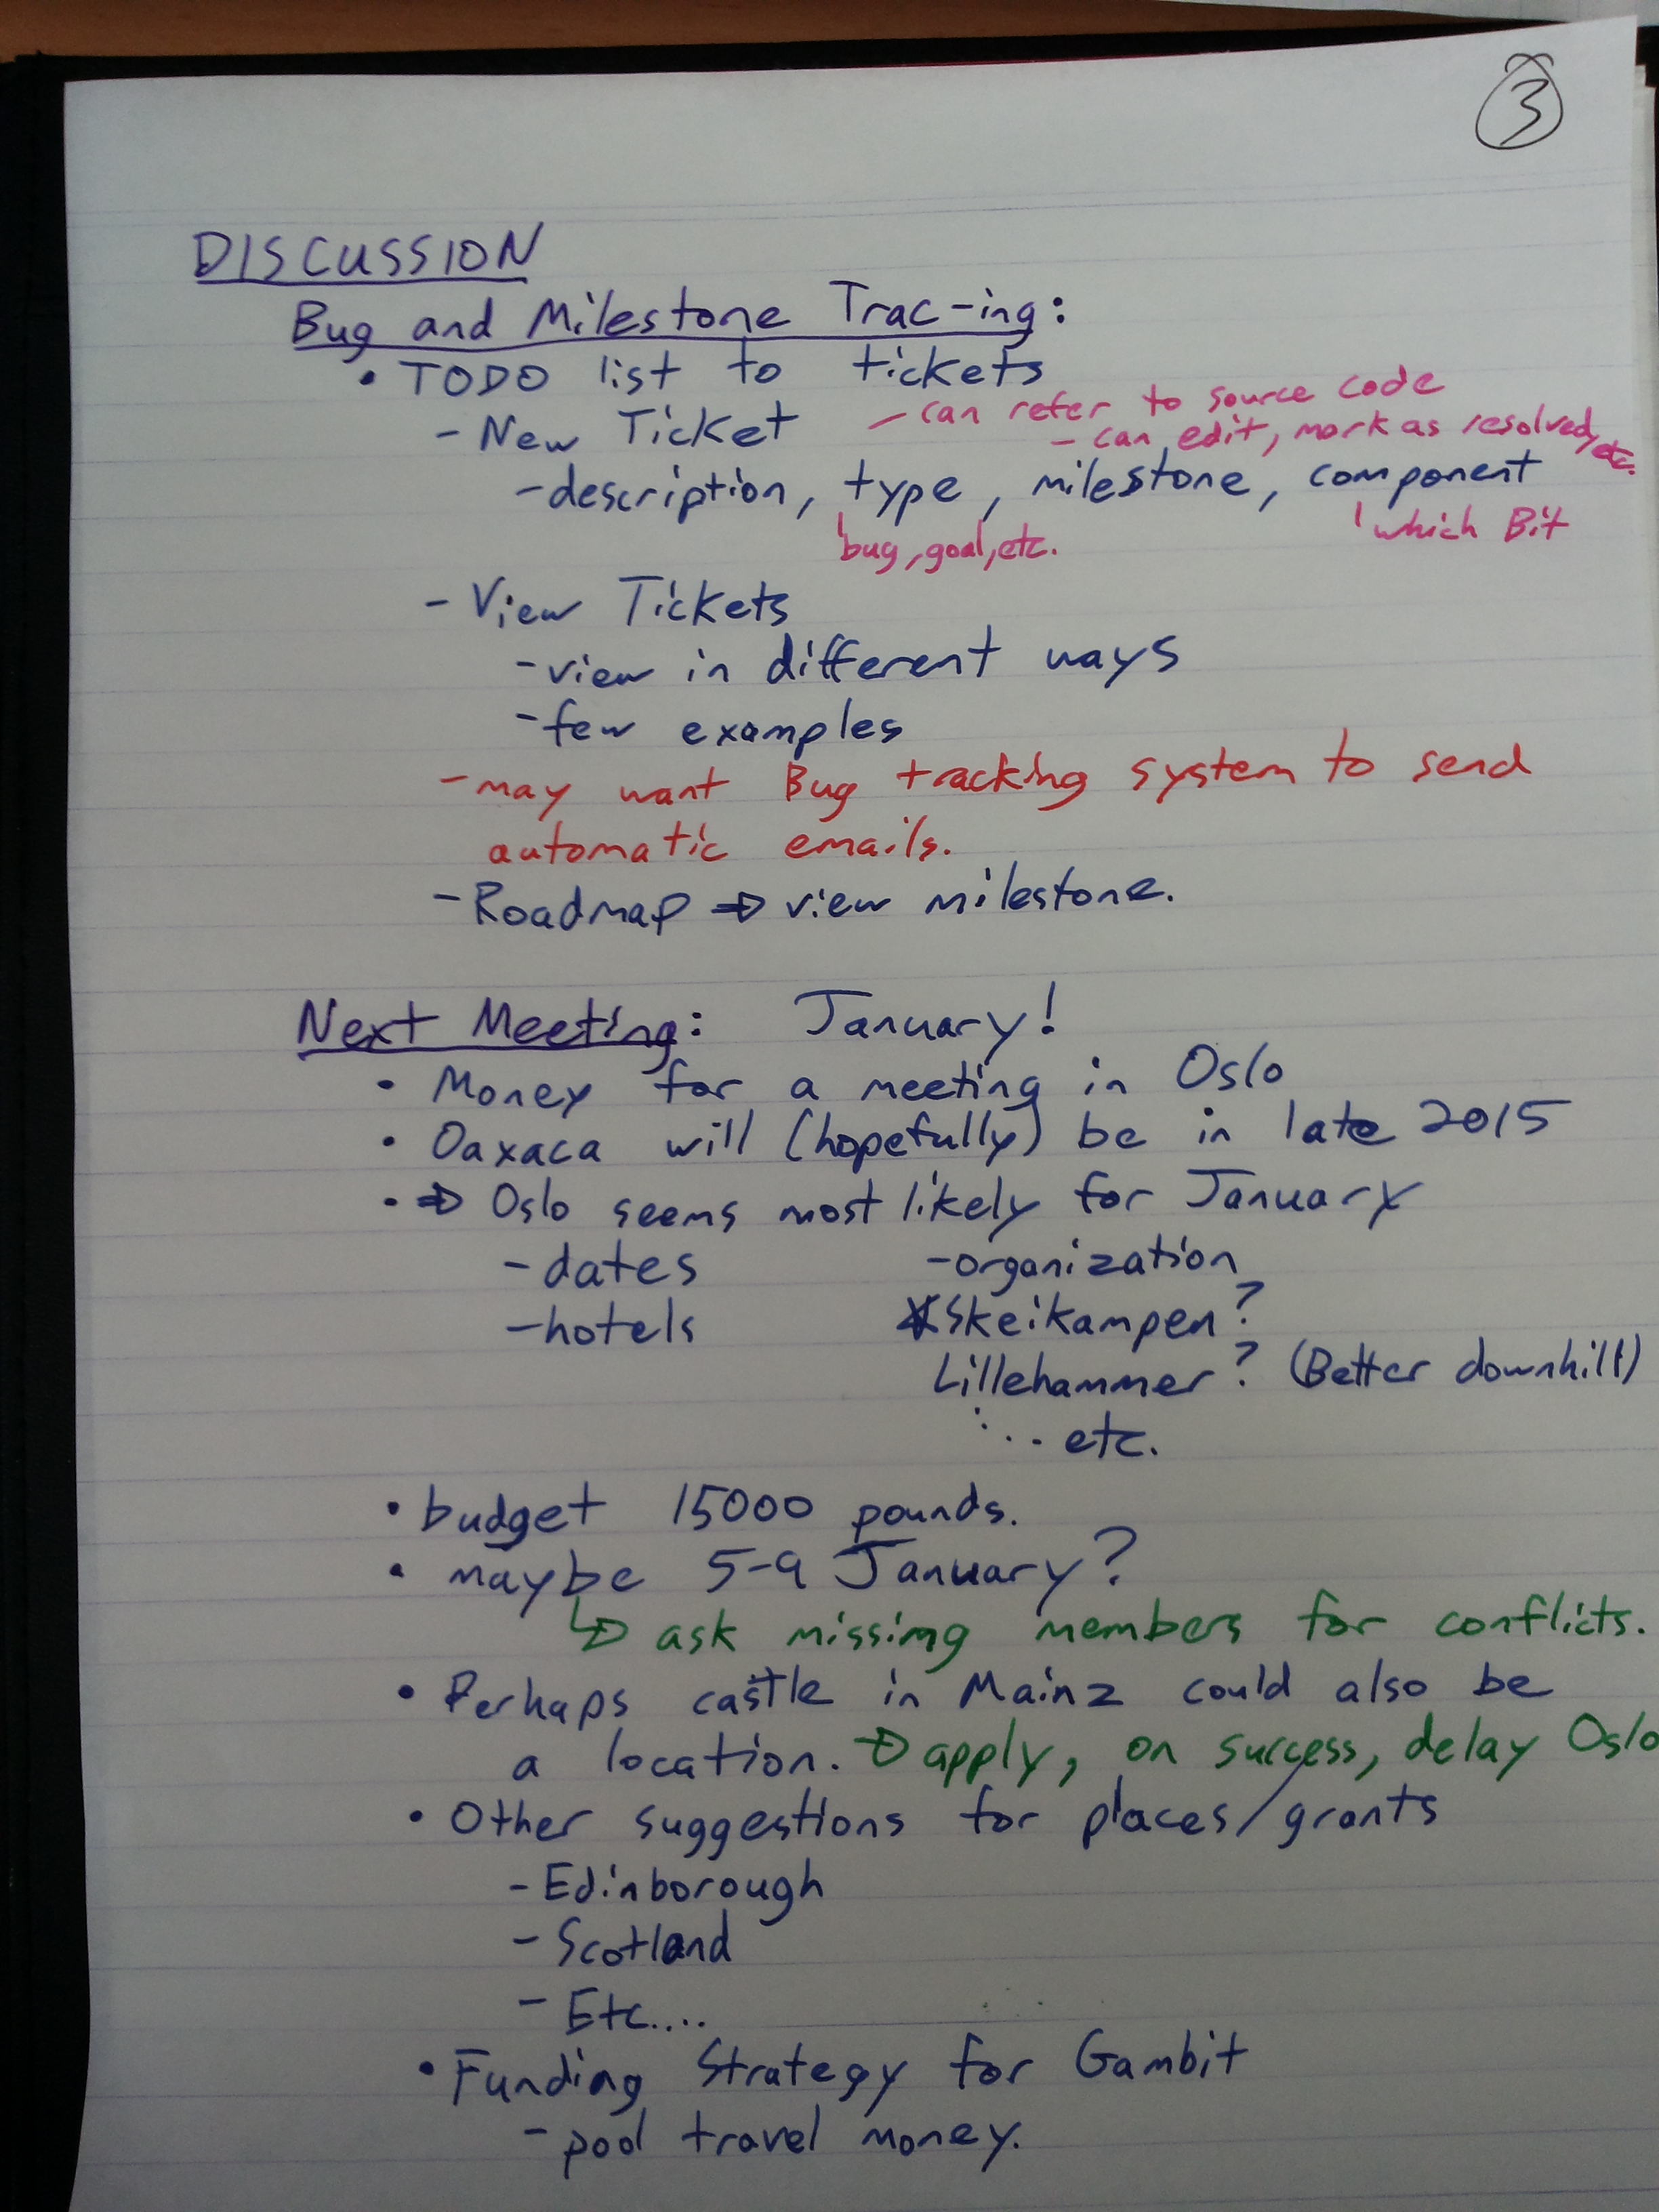 3
DISCUSSION
Bug and Milestone Trac-ing:
• TODO list to tickets
- New Ticket - can refer to source code
- can edit, mark as resolved, etc.
- description, type, milestone, component
bug, goal, etc. which Bit
- View Tickets
- view in different ways
- few examples
- may want Bug tracking system to send
automatic emails.
- Roadmap ⇒ view milestone.
Next Meeting: January!
• Money for a meeting in Oslo
• Oaxaca will (hopefully) be in late 2015
• ⇒ Oslo seems most likely for January
- dates - organization
- hotels * Skeikampen?
Lillehammer? (Better downhill)
... etc.
• budget 15000 pounds.
• maybe 5-9 January?
↳ ask missing members for conflicts.
• Perhaps castle in Mainz could also be
a location. ⇒ apply, on success, delay Oslo
• Other suggestions for places/grants
- Edinborough
- Scotland
- Etc....
• Funding Strategy for Gambit
- pool travel money.